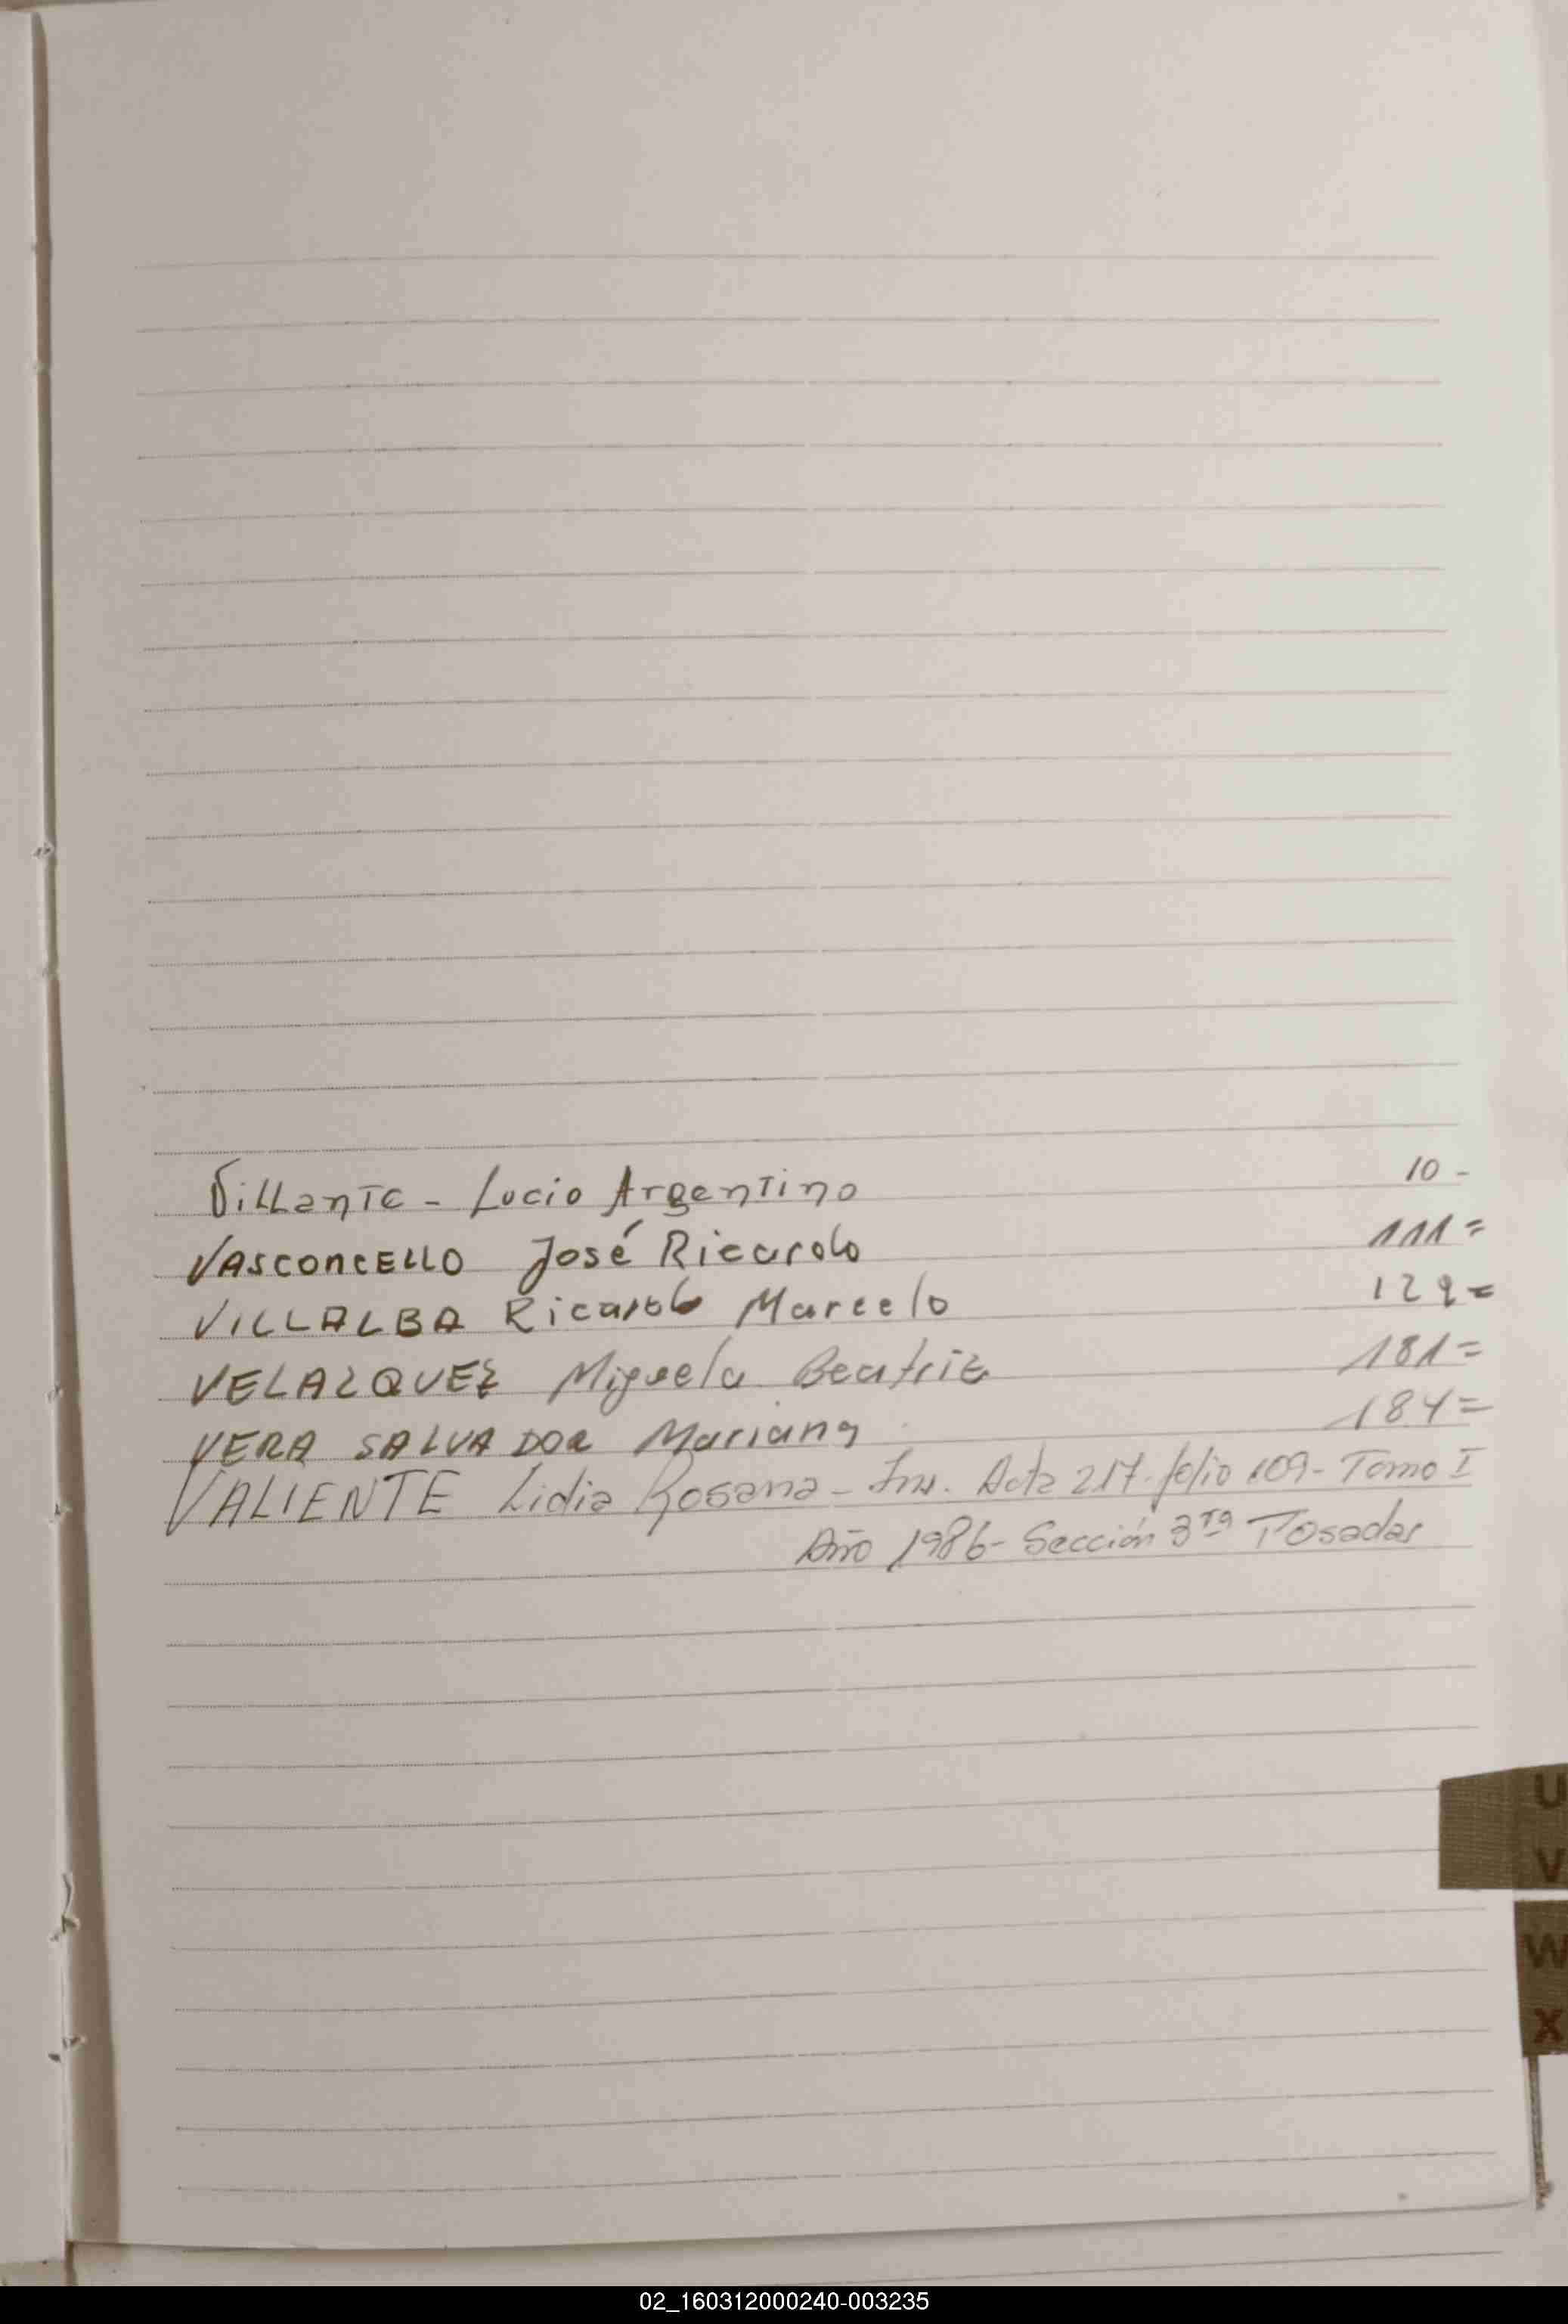 Villante - Lucio Argentino 10 -
VASCONCELLO José Ricardo 111 =
VILLALBA Ricardo Marcelo 129 =
VELAZQUEZ Miguela Beatriz 181 =
VERA SALVADOR Mariana 184 =
VALIENTE Lidia Rosana - Ins. Acta 217 - folio 109 - Tomo I
Año 1986 - Sección 3ra Posadas
U
V
W
X
02_160312000240-003235